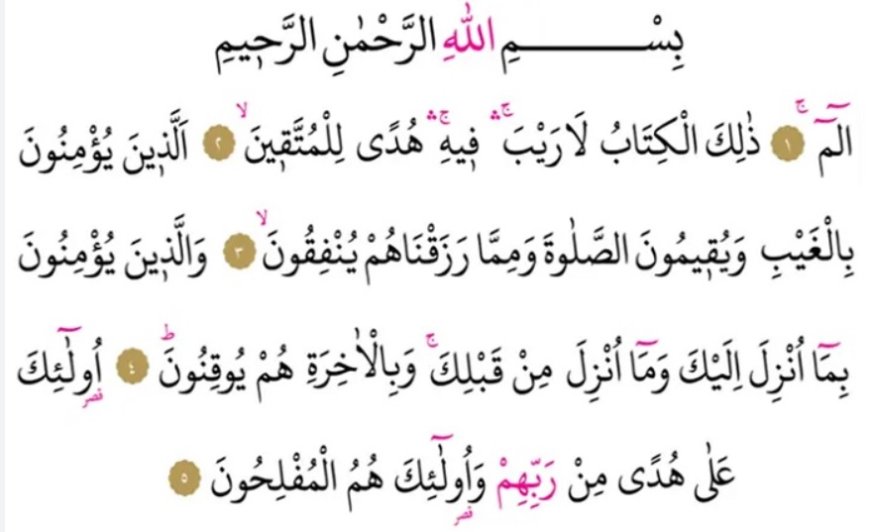 بِسْــــــــــــمِ اللّٰهِ الرَّحْمٰنِ الرَّح۪يمِ
الٓمٓ ۚ ﴿١﴾ ذٰلِكَ الْكِتَابُ لَا رَيْبَ ۛۚ ف۪يهِ ۛۚ هُدًى لِلْمُتَّق۪ينَ ۙ ﴿٢﴾ اَلَّذ۪ينَ يُؤْمِنُونَ
بِالْغَيْبِ وَيُق۪يمُونَ الصَّلٰوةَ وَمِمَّا رَزَقْنَاهُمْ يُنْفِقُونَ ۙ ﴿٣﴾ وَالَّذ۪ينَ يُؤْمِنُونَ
بِمَٓا اُنْزِلَ اِلَيْكَ وَمَٓا اُنْزِلَ مِنْ قَبْلِكَ ۚ وَبِالْاٰخِرَةِ هُمْ يُوقِنُونَ ۜ ﴿٤﴾ اُو۬لٰٓئِكَ قصر
عَلٰى هُدًى مِنْ رَبِّهِمْ وَاُو۬لٰٓئِكَ قصر هُمُ الْمُفْلِحُونَ ﴿٥﴾